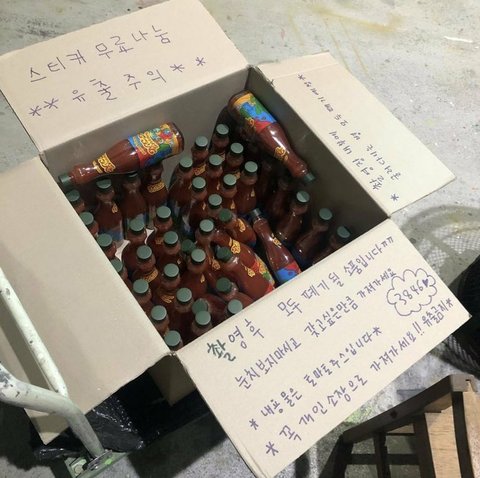 스티커 무료나눔
** 유출 주의 **
촬영후 모두 폐기 될 소품입니다ㅠㅠ
눈치보지마시고 갖고싶은만큼 가져가세요
3846♡
* 내용물은 토마토주스입니다 *
* 꼭 개인소장으로 가져가세요!! 유출금지 *